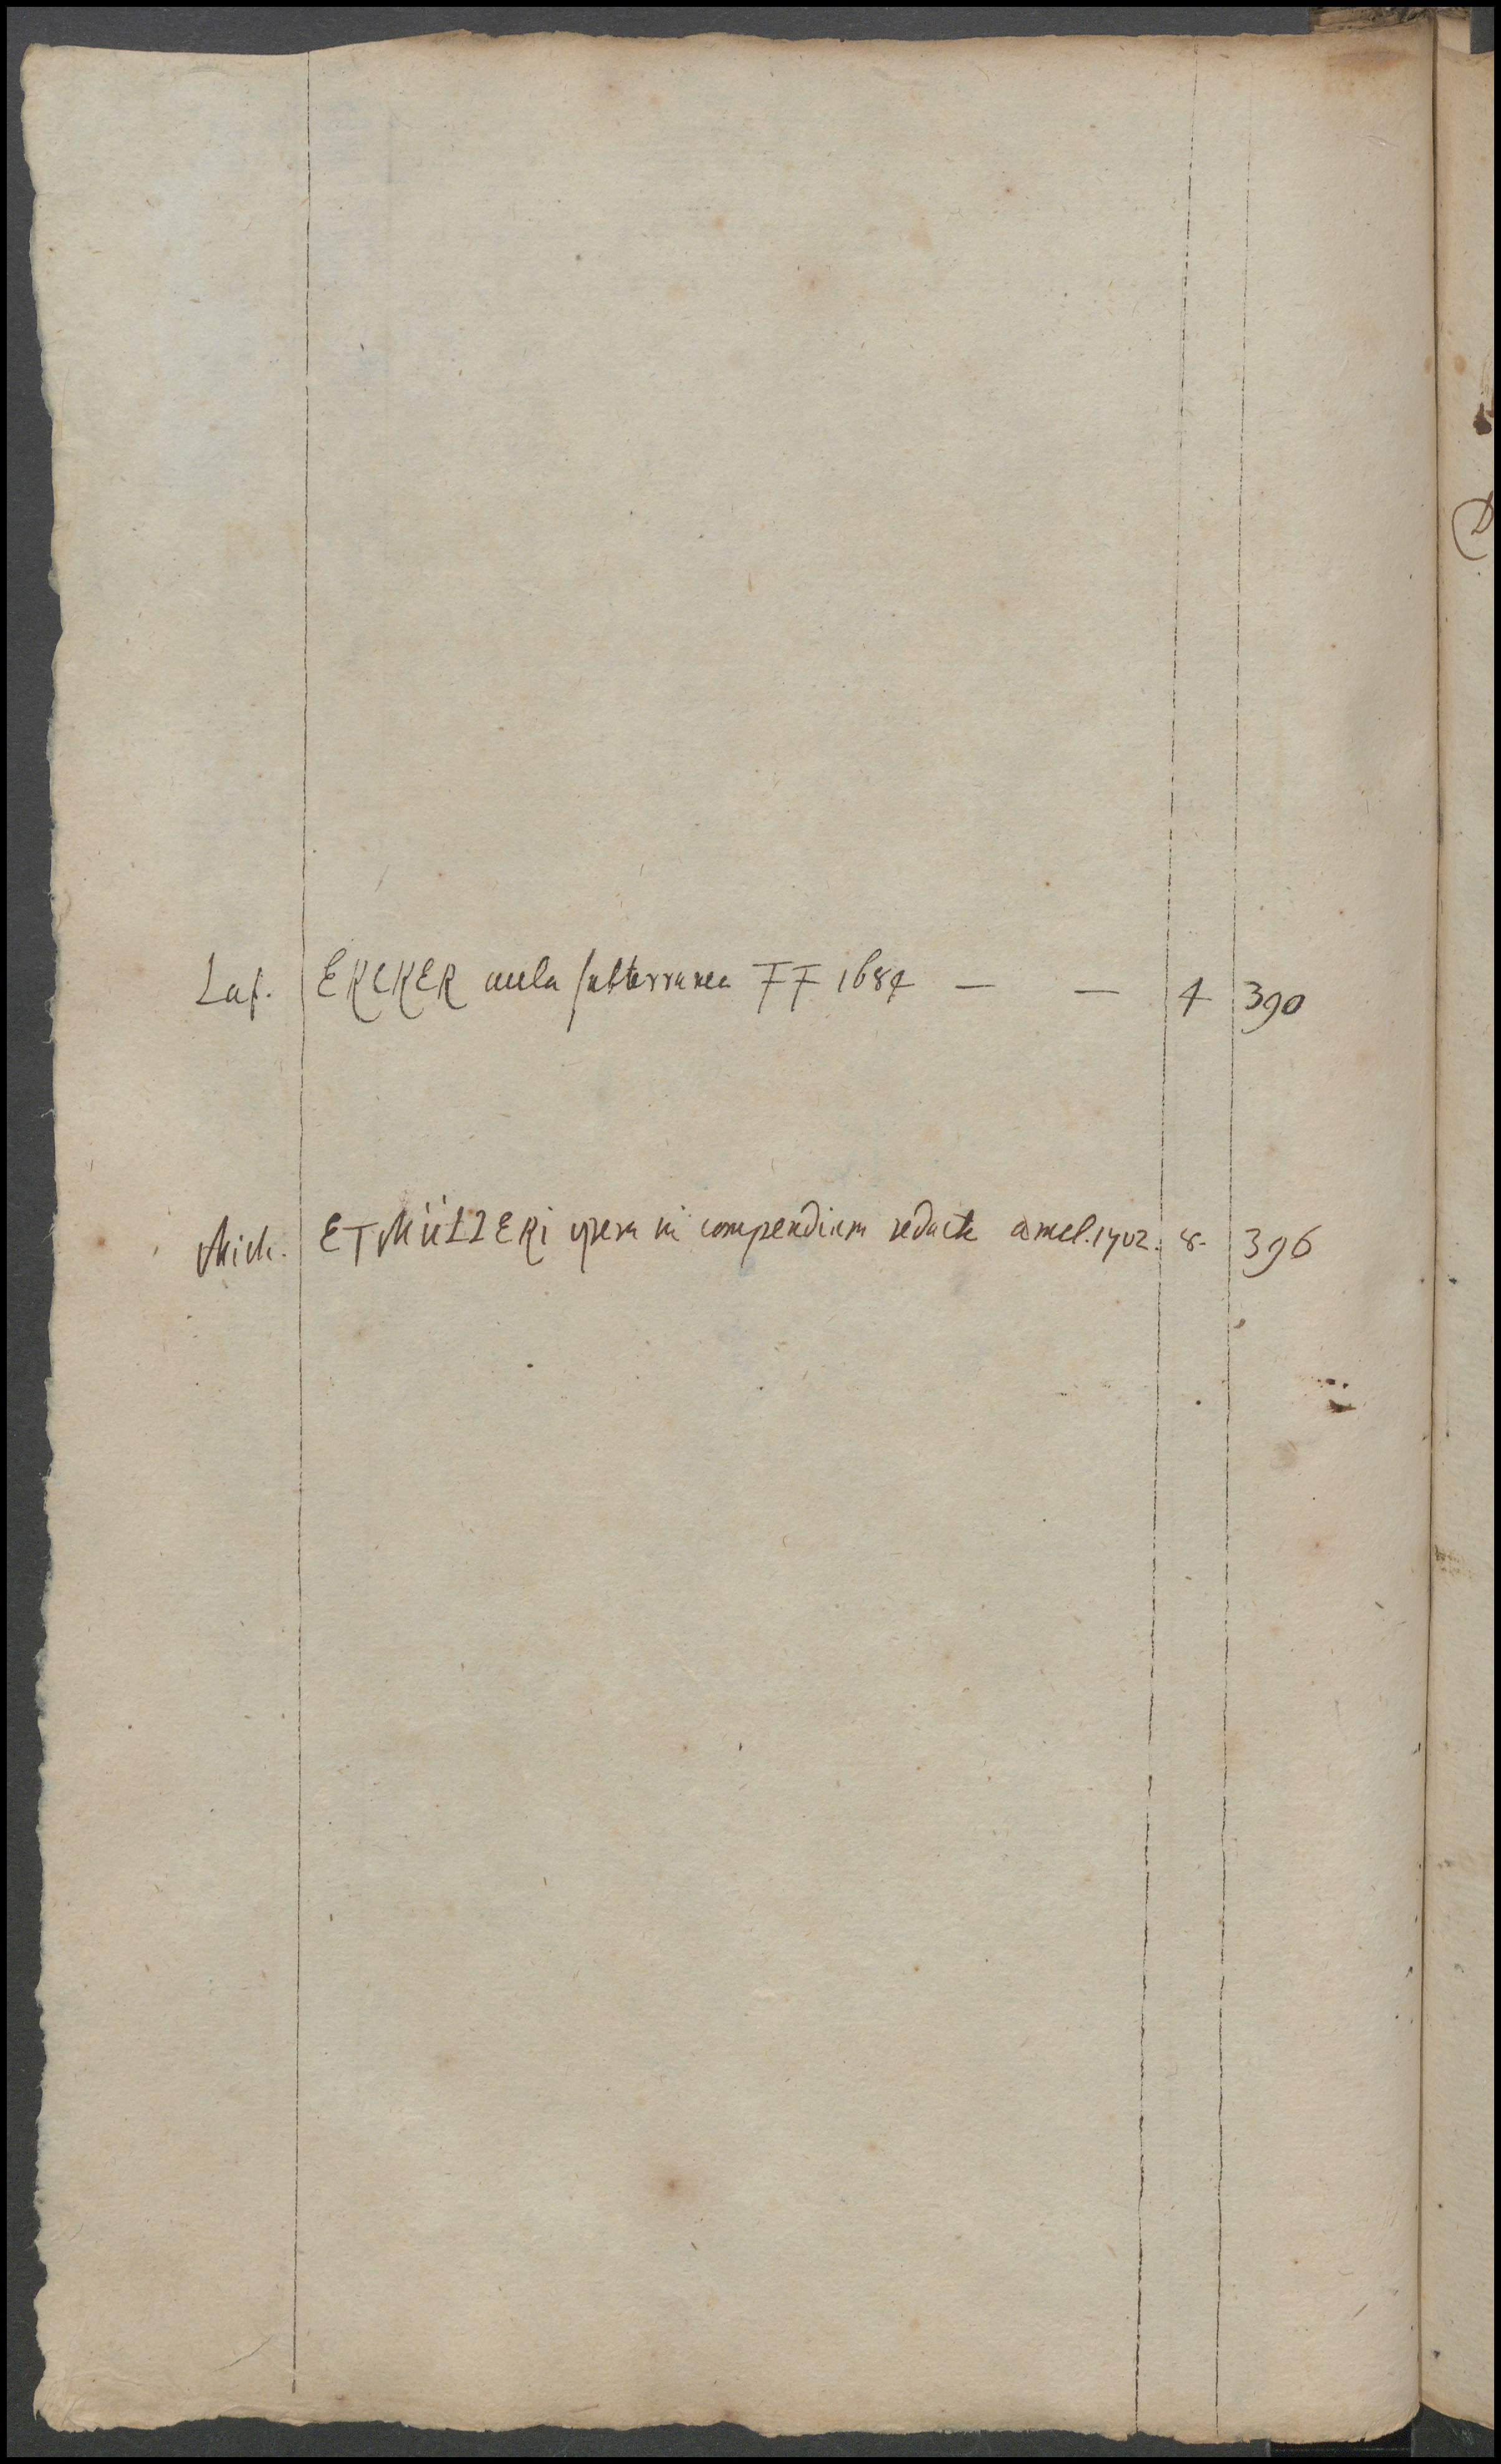 Laz. ERCKER aula subterranea FF 1684 — — 4 390
Mich. ETMÜLLERI opera in compendium redacta amstel. 1702. 8. 396